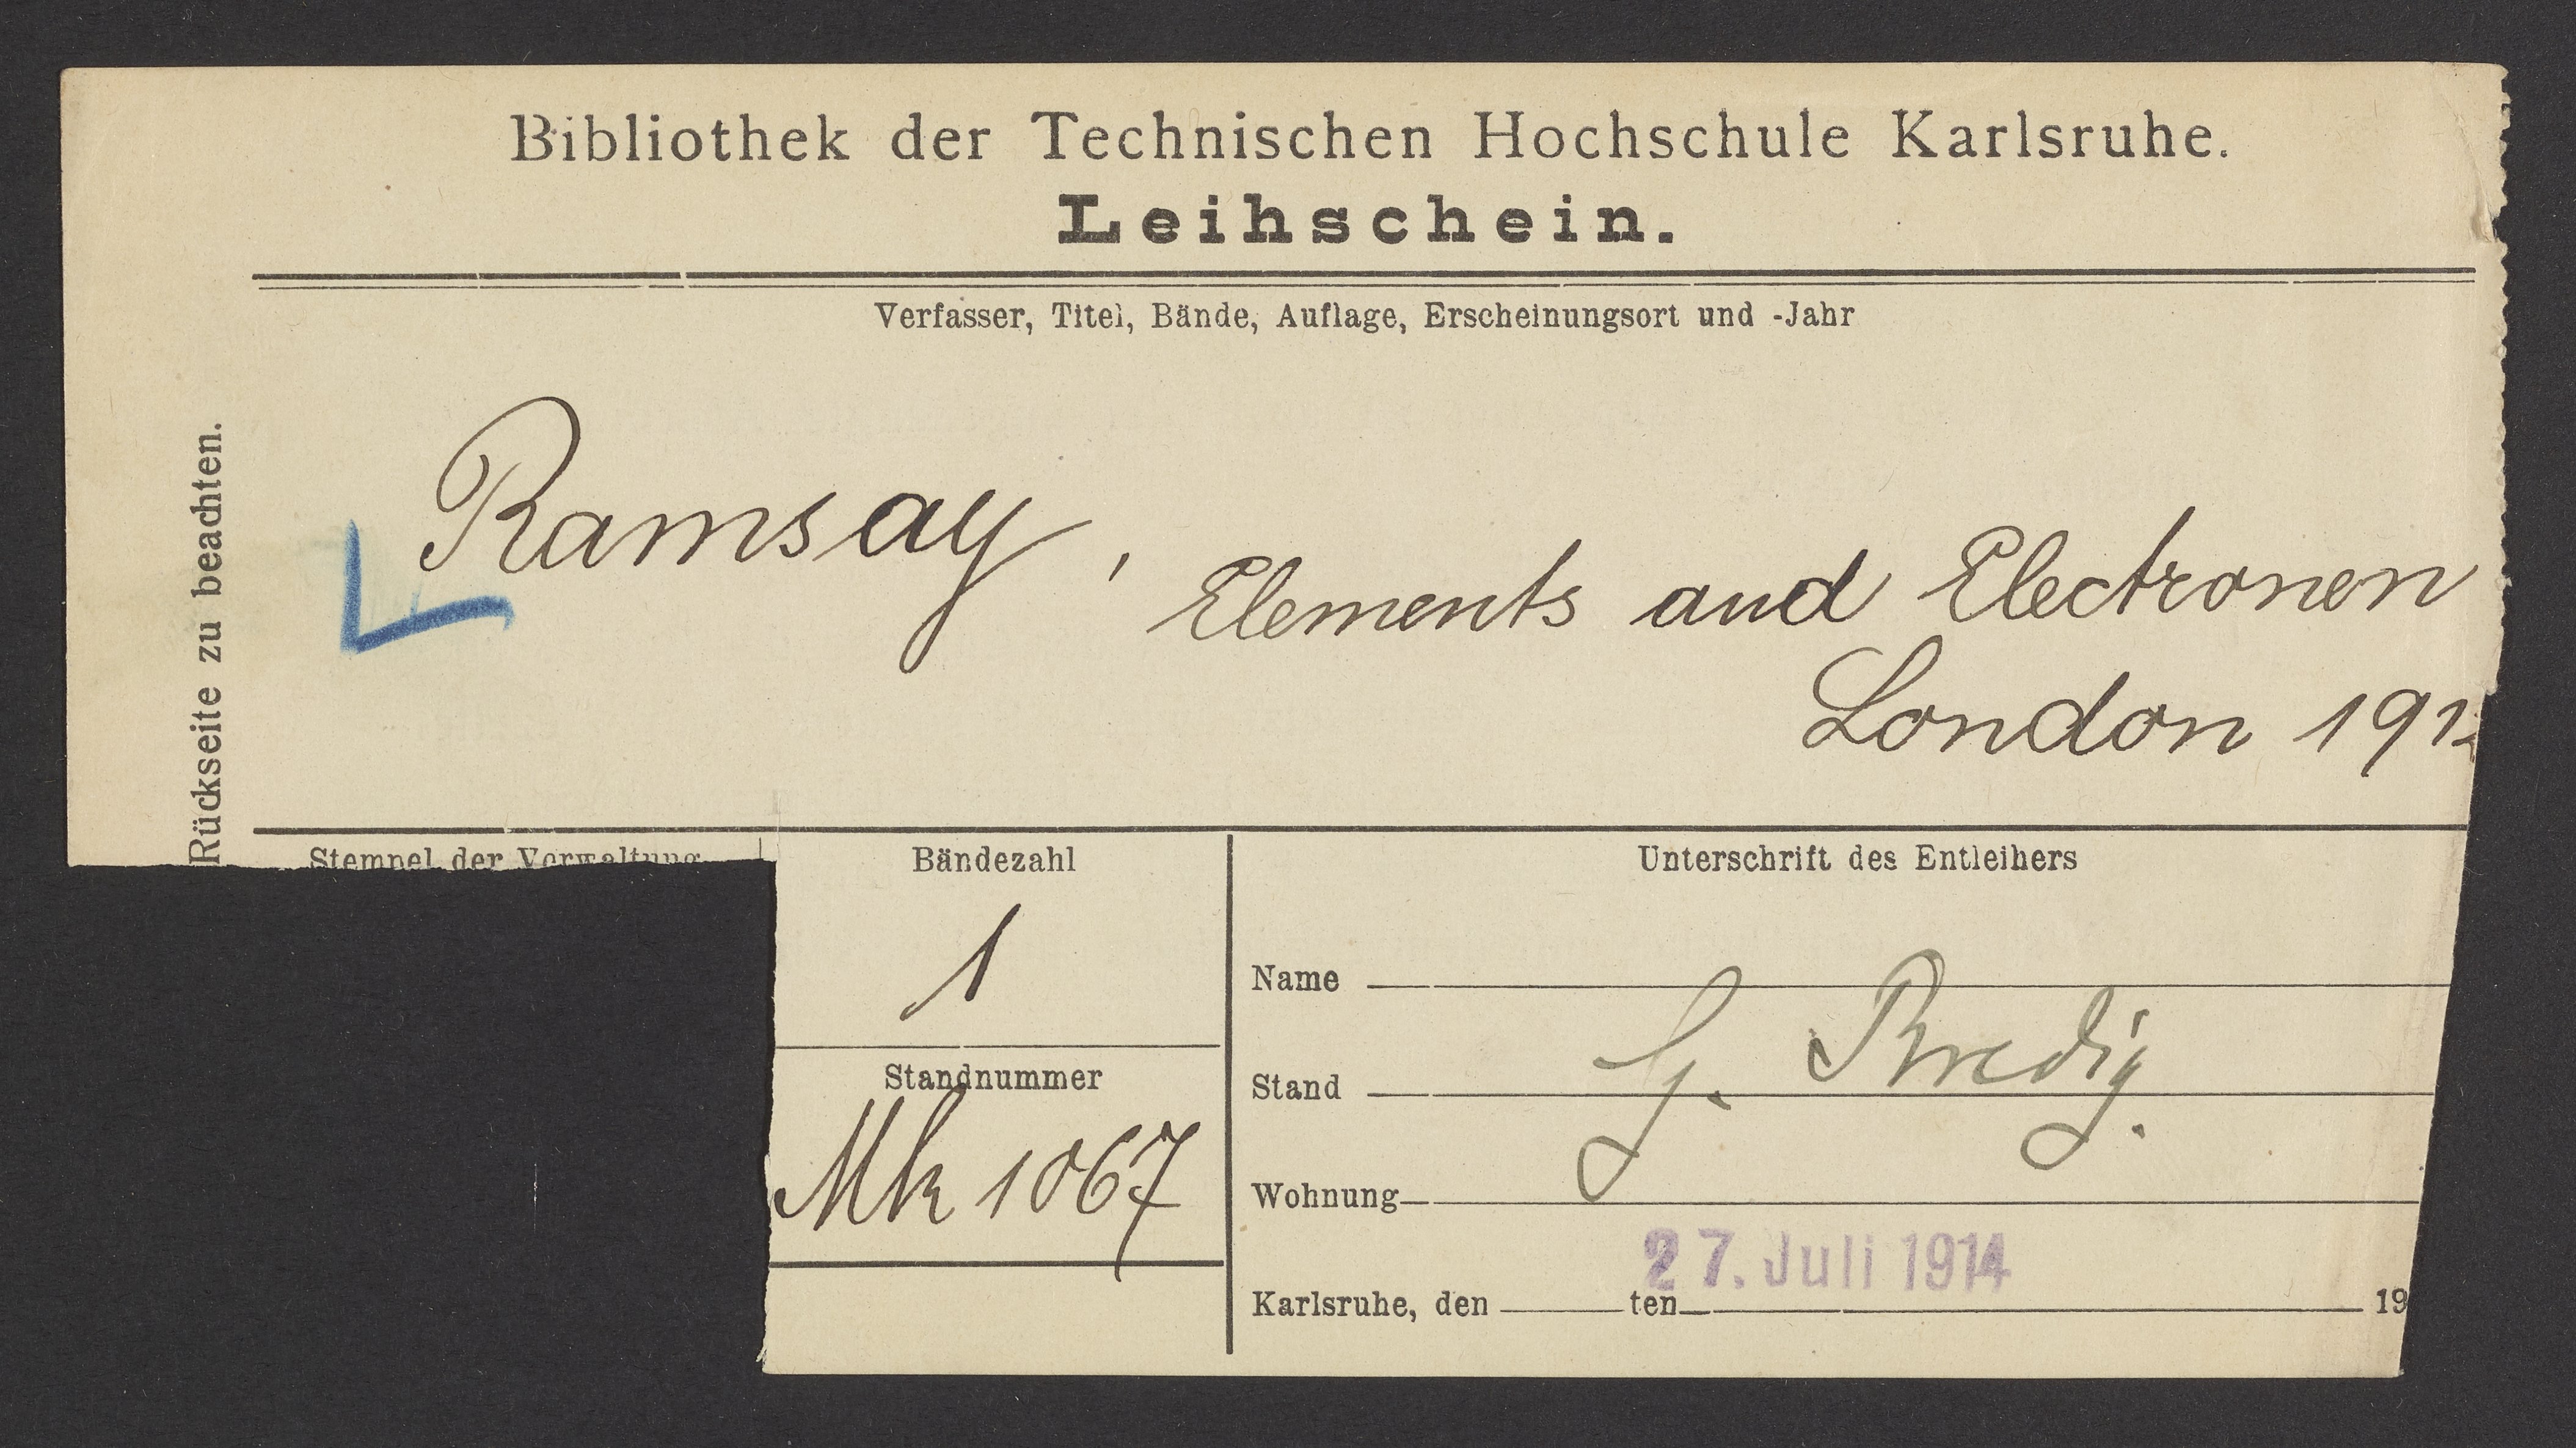 Bibliothek der Technischen Hochschule Karlsruhe.
Leihschein.
Verfasser, Titel, Bände, Auflage, Erscheinungsort und -Jahr
Rückseite zu beachten.
Ramsay, Elements and Electronen
London 191
Stempel der Verwaltung
Bändezahl
1
Standnummer
Mk 1067
Unterschrift des Entleihers
Name
Stand
G. Bredig.
Wohnung
27. Juli 1914
Karlsruhe, den ten 19